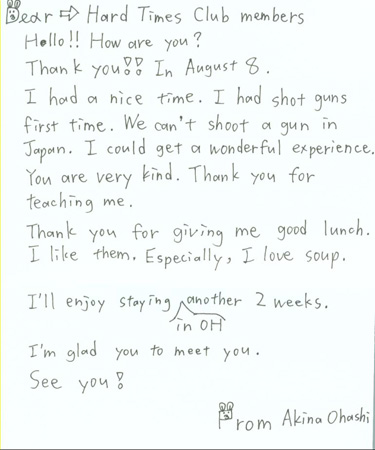 Dear ⇨ Hard Times Club members
Hello!! How are you?
Thank you!! In August 8.
I had a nice time. I had shot guns
first time. We can't shoot a gun in
Japan. I could get a wonderful experience.
You are very kind. Thank you for
teaching me.
Thank you for giving me good lunch.
I like them. Especially, I love soup.
I'll enjoy staying another 2 weeks.
in OH
I'm glad you to meet you.
See you!
From Akina Ohashi